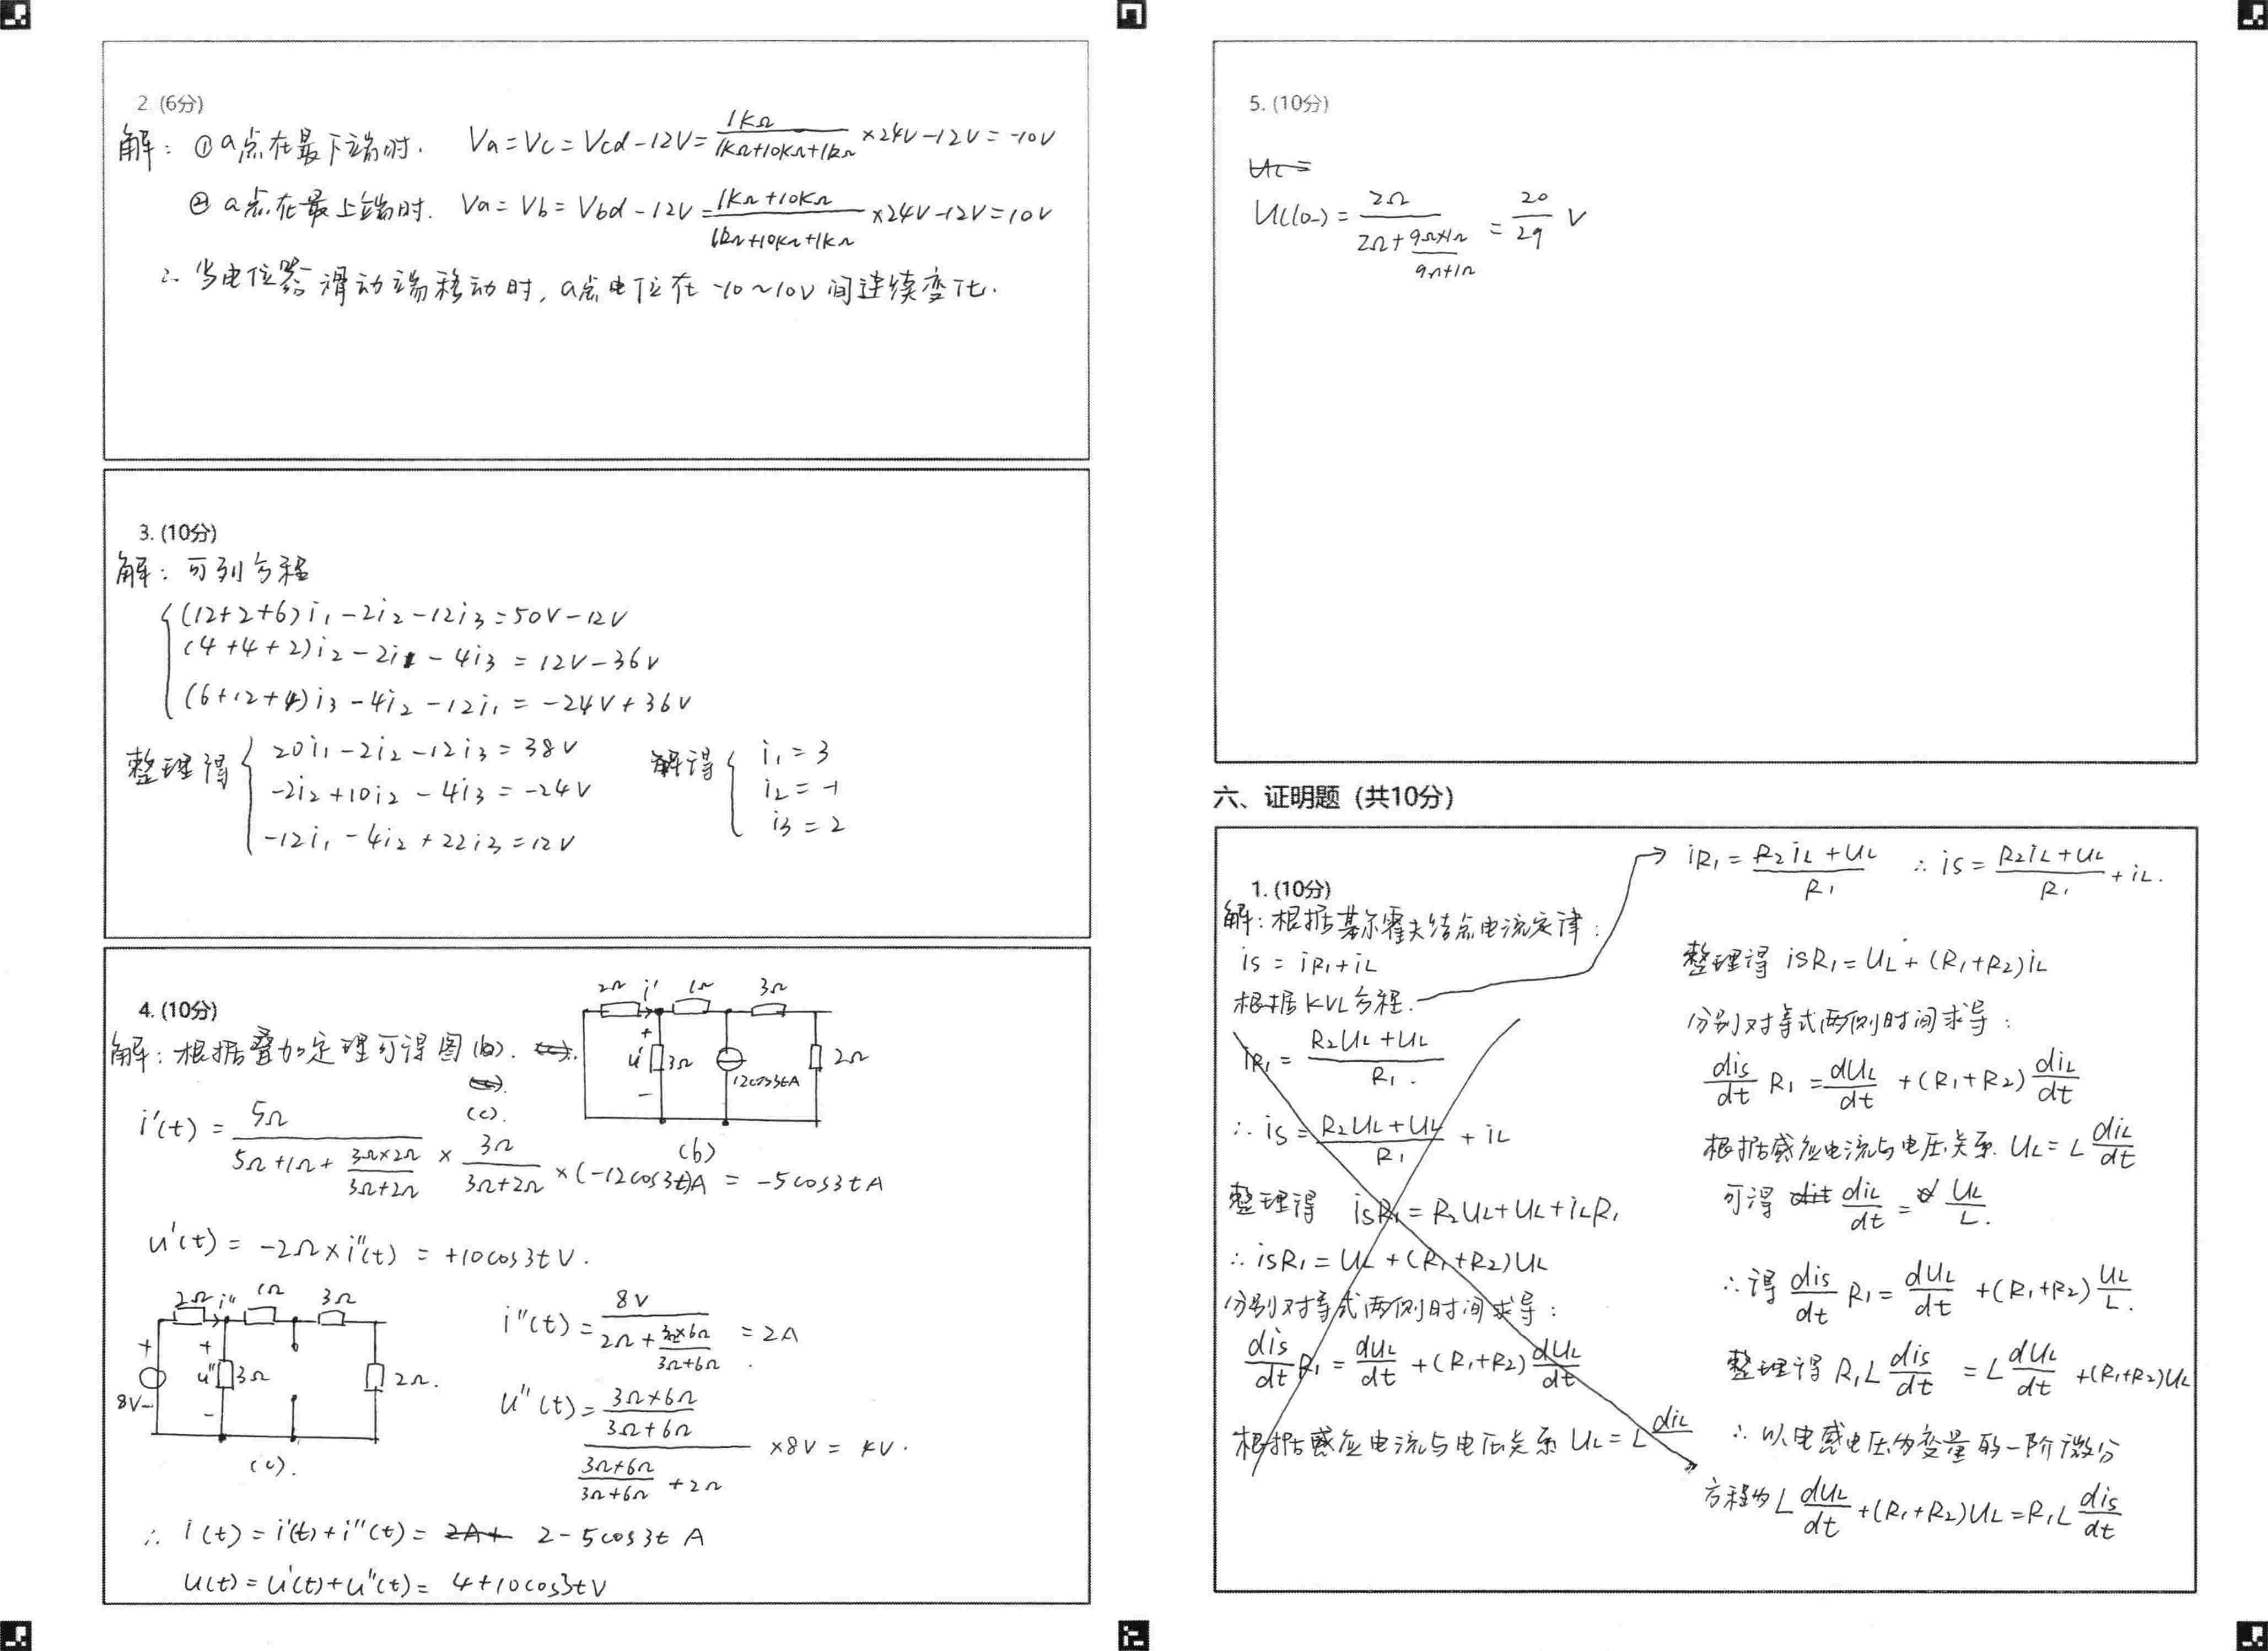 2. (6分)
解：①a点在最下端时. Va=Vc=Vcd-12V=\frac{1KΩ}{1KΩ+10KΩ+1KΩ}×24V-12V=-10V
②a点在最上端时. Va=Vb=Vbd-12V=\frac{1KΩ+10KΩ}{1KΩ+10KΩ+1KΩ}×24V-12V=10V
∴当电位器滑动端移动时，a点电位在-10~10V间连续变化.
3. (10分)
解：可列方程
(12+2+6)i₁-2i₂-12i₃=50V-12V
(4+4+2)i₂-2i₁-4i₃=12V-36V
(6+12+4)i₃-4i₂-12i₁=-24V+36V
整理得 { 20i₁-2i₂-12i₃=38V
-2i₂+10i₂-4i₃=-24V
-12i₁-4i₂+22i₃=12V
解得 { i₁=3
i₂=-1
i₃=2
4. (10分)
解：根据叠加定理可得图(b).
(c).
2Ω i' 1Ω 3Ω
+ u' - 3Ω 12cos3tA 2Ω
(b)
i'(t)=\frac{5Ω}{5Ω+1Ω+\frac{3Ω×2Ω}{3Ω+2Ω}}×\frac{3Ω}{3Ω+2Ω}×(-12cos3t)A=-5cos3tA
u'(t)=-2Ω×i''(t)=+10cos3tV.
2Ω i'' 1Ω 3Ω
+ 8V - + u'' - 3Ω 2Ω.
(c).
i''(t)=\frac{8V}{2Ω+\frac{3Ω×6Ω}{3Ω+6Ω}}=2A.
u''(t)=\frac{\frac{3Ω×6Ω}{3Ω+6Ω}}{\frac{3Ω×6Ω}{3Ω+6Ω}+2Ω}×8V=4V.
∴ i(t)=i'(t)+i''(t)=2A+ 2-5cos3t A
u(t)=u'(t)+u''(t)=4+10cos3tV
5. (10分)
UL=
UL(0-)=\frac{2Ω}{2Ω+\frac{9Ω×1Ω}{9Ω+1Ω}}=\frac{20}{29}V
六、证明题（共10分）
1. (10分)
解：根据基尔霍夫结点电流定律：
is=iR₁+iL
根据KVL方程.
iR₁=\frac{R₂UL+UL}{R₁}.
∴is=\frac{R₂UL+UL}{R₁}+iL
整理得 isR₁=R₂UL+UL+iLR₁
∴isR₁=UL+(R₁+R₂)UL
分别对等式两侧时间求导：
\frac{dis}{dt}R₁=\frac{dUL}{dt}+(R₁+R₂)\frac{dUL}{dt}
根据感应电流与电压关系 UL=L\frac{diL}{dt}
iR₁=\frac{R₂iL+UL}{R₁} ∴is=\frac{R₂iL+UL}{R₁}+iL.
整理得 isR₁=UL+(R₁+R₂)iL
分别对等式两侧时间求导：
\frac{dis}{dt}R₁=\frac{dUL}{dt}+(R₁+R₂)\frac{diL}{dt}
根据感应电流与电压关系. UL=L\frac{diL}{dt}
可得 \frac{diL}{dt}=\frac{UL}{L}.
∴得\frac{dis}{dt}R₁=\frac{dUL}{dt}+(R₁+R₂)\frac{UL}{L}.
整理得 R₁L\frac{dis}{dt}=L\frac{dUL}{dt}+(R₁+R₂)UL
∴以电感电压为变量的一阶微分
方程为L\frac{dUL}{dt}+(R₁+R₂)UL=R₁L\frac{dis}{dt}